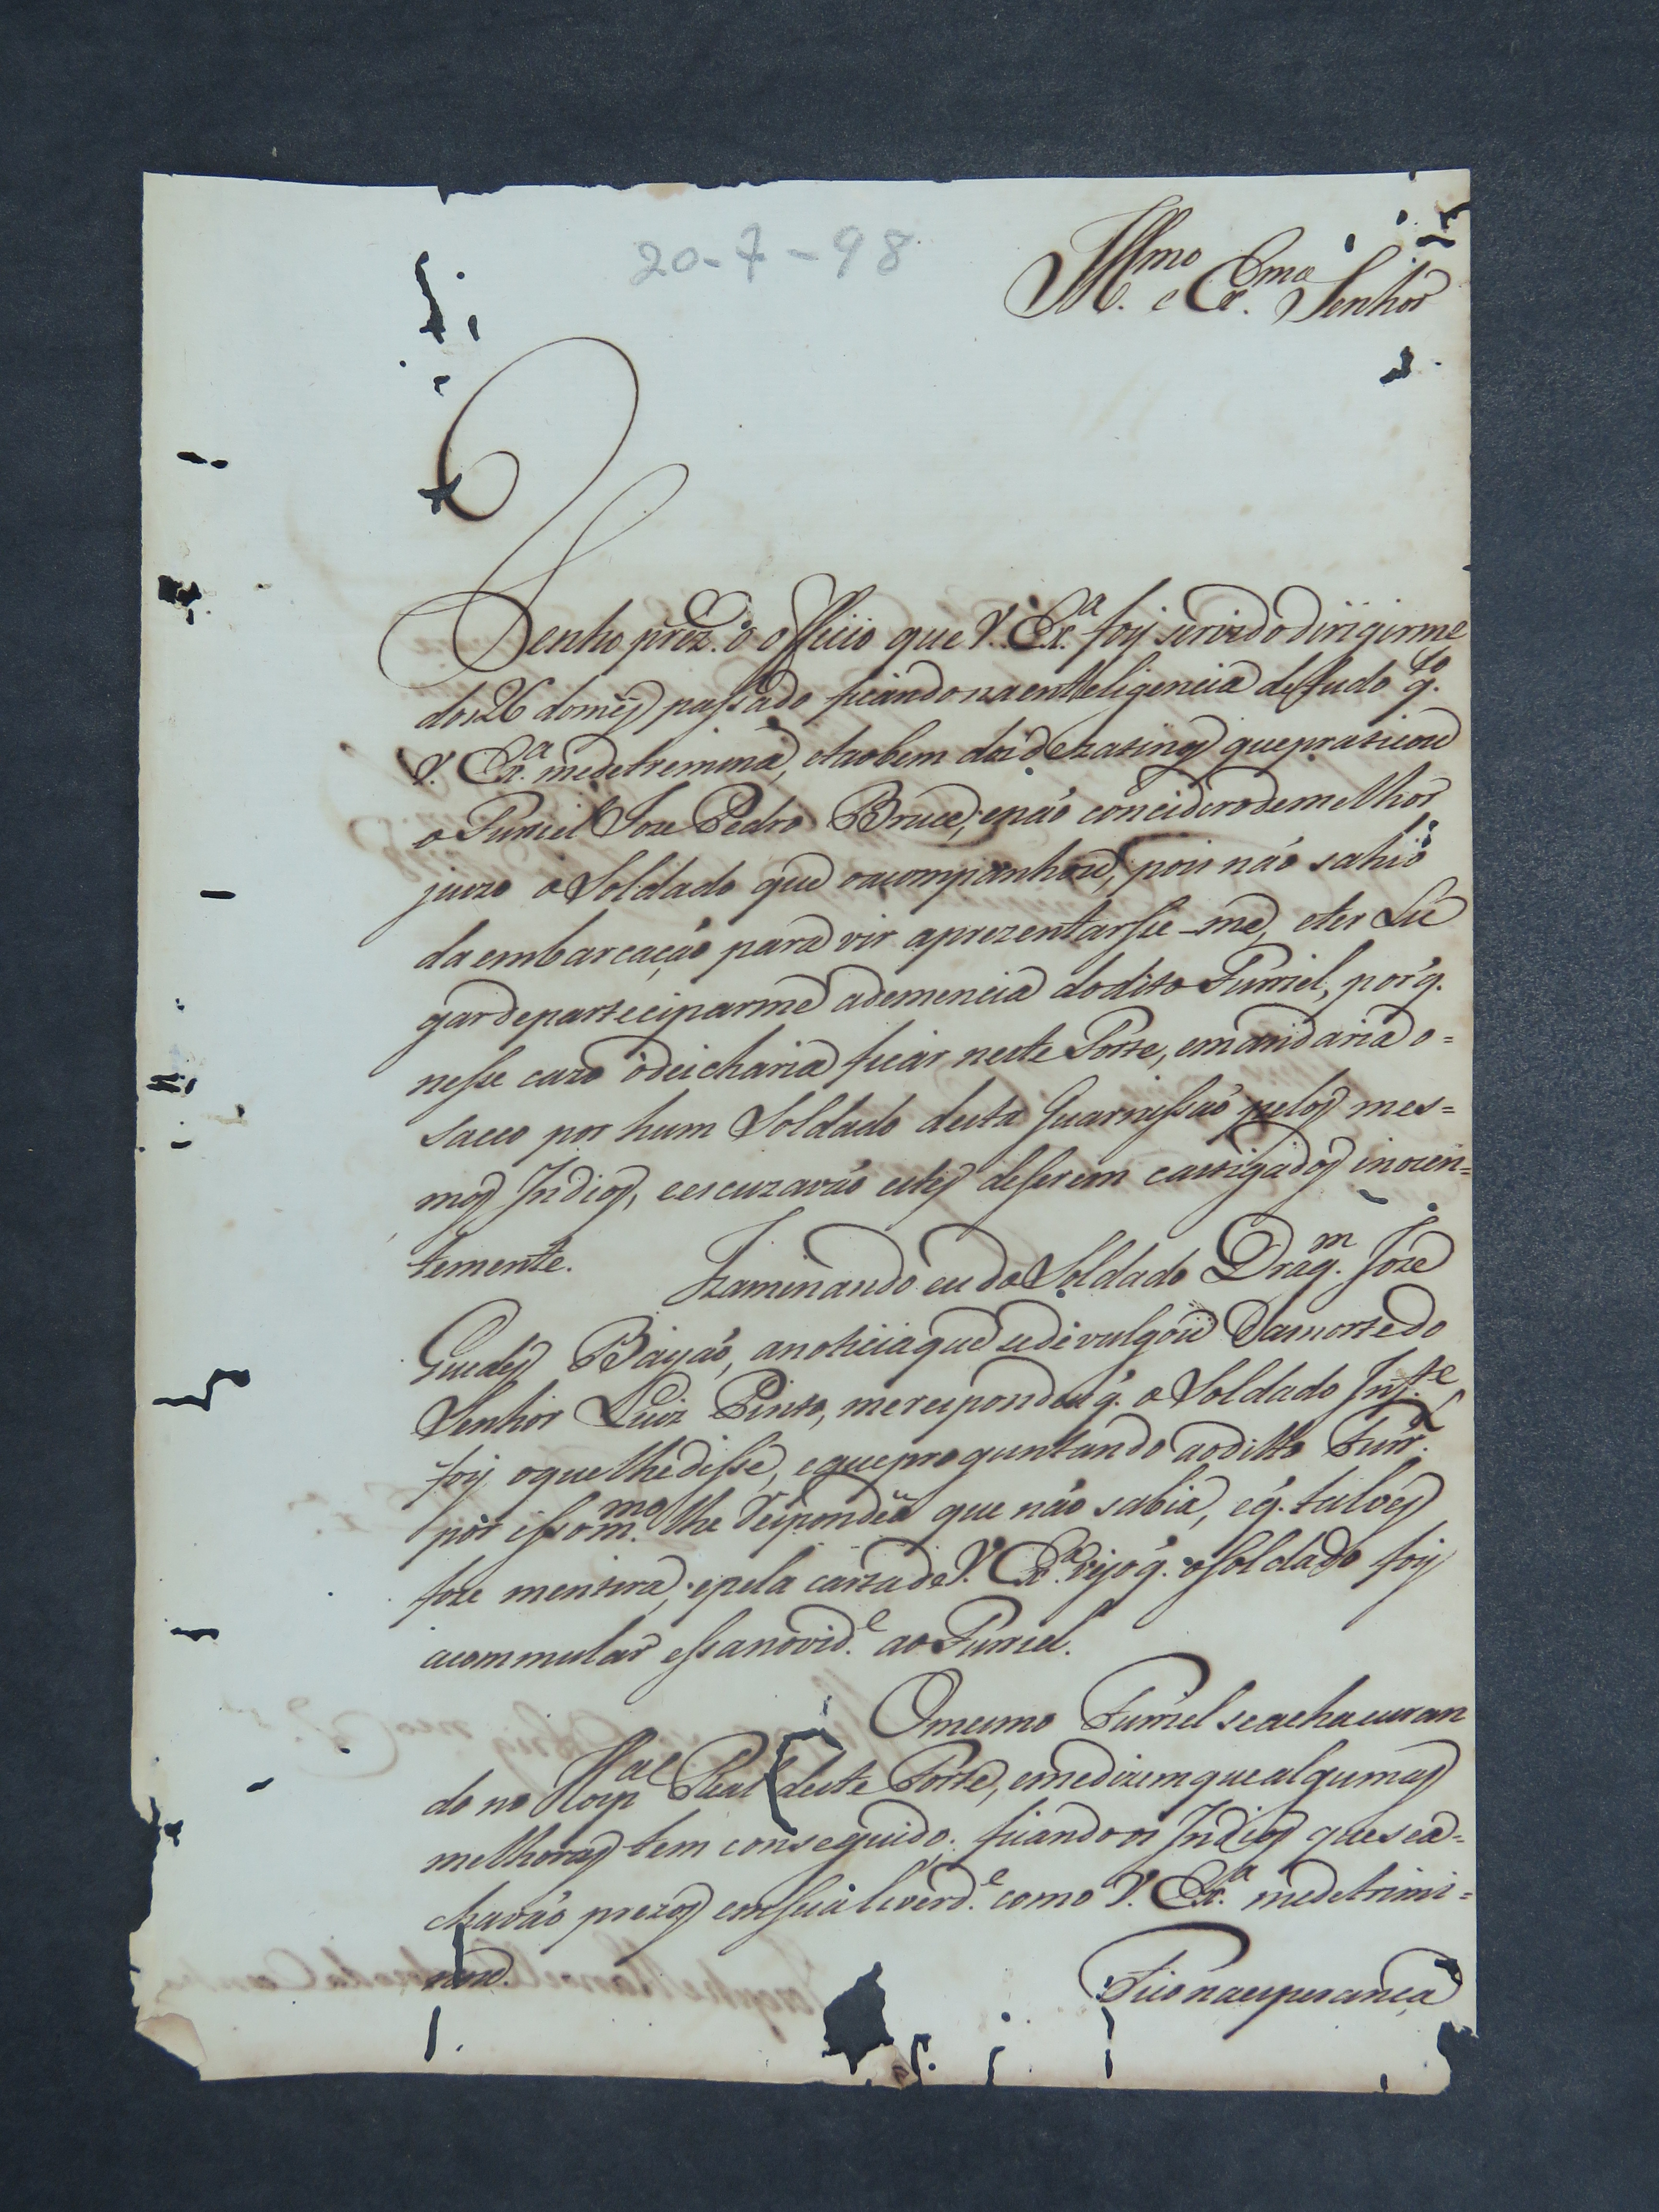 20-7-98
Ill.mo e Ex.mo Senhor
Tenho prez.e o officio que V. Ex.a foy servido dirigirme
dos 26 do mês passado ficando na entteligencia de tudo q.to
V. Ex.a medetremina, etaobem dos dezatinos que praticou
o Furriel Joze Pedro Bruce, enão concidero de melhor
juizo o Soldado que o acompanhou, pois não sahio
da embarcação para vir aprezentarsse-me, eter Lu
gar departeciparme ademencia do dito Furriel, porq.
nesse cazo o deicharia ficar neste Forte, emandaria o=
sacco por hum Soldado desta Guarnissão pelos mes=
mos Indios, eescuzavão estes de serem castigados inocen=
temente. Izaminando eu do Soldado Drag.m Joze
Guedes Bayão, anoticia que sedivulgou Da morte do
Senhor Luiz Pinto, me respondeu q. o Soldado Inf.te
foy oque lhe disse, eque proguntando aoditto Furr.l
por isso m.mo lhe Respondeu que não sabia, eq. talvês
foze mentira, epela carta de V. Ex.a vejo q. o soldado foy
acommular essa novid.e ao Furriel.
O mesmo Furriel se acha curan
do no Hosp.al Real deste Forte, eme dizem que algumas
melhoras tem conseguido; ficando os Indios que sea=
chavão prezos em sua liverd.e como V. Ex.a medetrimi=
nou.
Fico na esperança